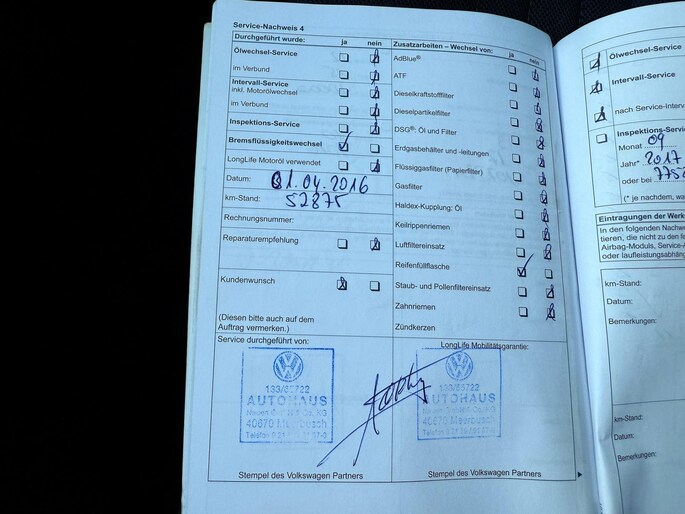 Service-Nachweis 4
Durchgeführt wurde: ja nein
Ölwechsel-Service
im Verbund
Intervall-Service
inkl. Motorölwechsel
im Verbund
Inspektions-Service
Bremsflüssigkeitswechsel
LongLife Motoröl verwendet
Datum: 01.04.2016
km-Stand: 52875
Rechnungsnummer:
Reparaturempfehlung
Kundenwunsch
(Diesen bitte auch auf dem
Auftrag vermerken.)
Service durchgeführt von:
133/55722
AUTOHAUS
40670 Meerbusch
Stempel des Volkswagen Partners
Zusatzarbeiten – Wechsel von: ja nein
AdBlue®
ATF
Dieselkraftstofffilter
Dieselpartikelfilter
DSG®: Öl und Filter
Erdgasbehälter und -leitungen
Flüssiggasfilter (Papierfilter)
Gasfilter
Haldex-Kupplung: Öl
Keilrippenriemen
Luftfiltereinsatz
Reifenfüllflasche
Staub- und Pollenfiltereinsatz
Zahnriemen
Zündkerzen
LongLife Mobilitätsgarantie:
133/55722
AUTOHAUS
40670 Meerbusch
Stempel des Volkswagen Partners
Ölwechsel-Service
Intervall-Service
nach Service-Interv
Inspektions-Service
Monat 09
Jahr* 2017
oder bei 7752
(* je nachdem, wa
Eintragungen der Werk
In den folgenden Nachwe
tieren, die nicht zu den fo
Airbag-Moduls, Service-A
oder laufleistungsabhäng
km-Stand:
Datum:
Bemerkungen:
km-Stand:
Datum:
Bemerkungen: